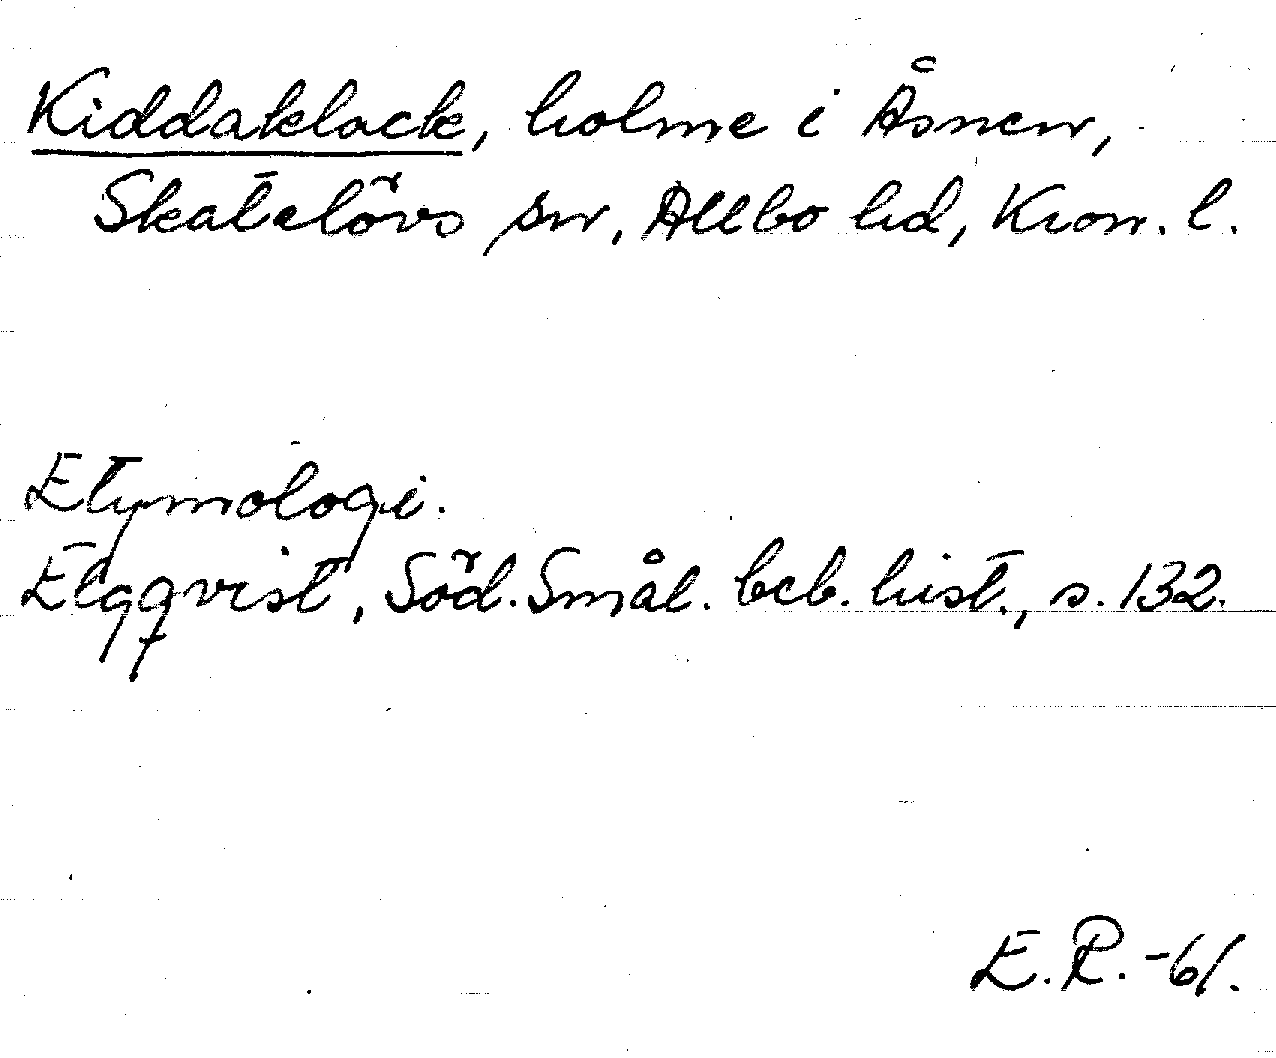 Kiddaklack, holme i Åsnen,
Skatelövs sn, Allbo hd, Kron. l.
Etymologi.
Elgqvist, Söd. Smål. beb. hist., s. 132.
E. R. -61.